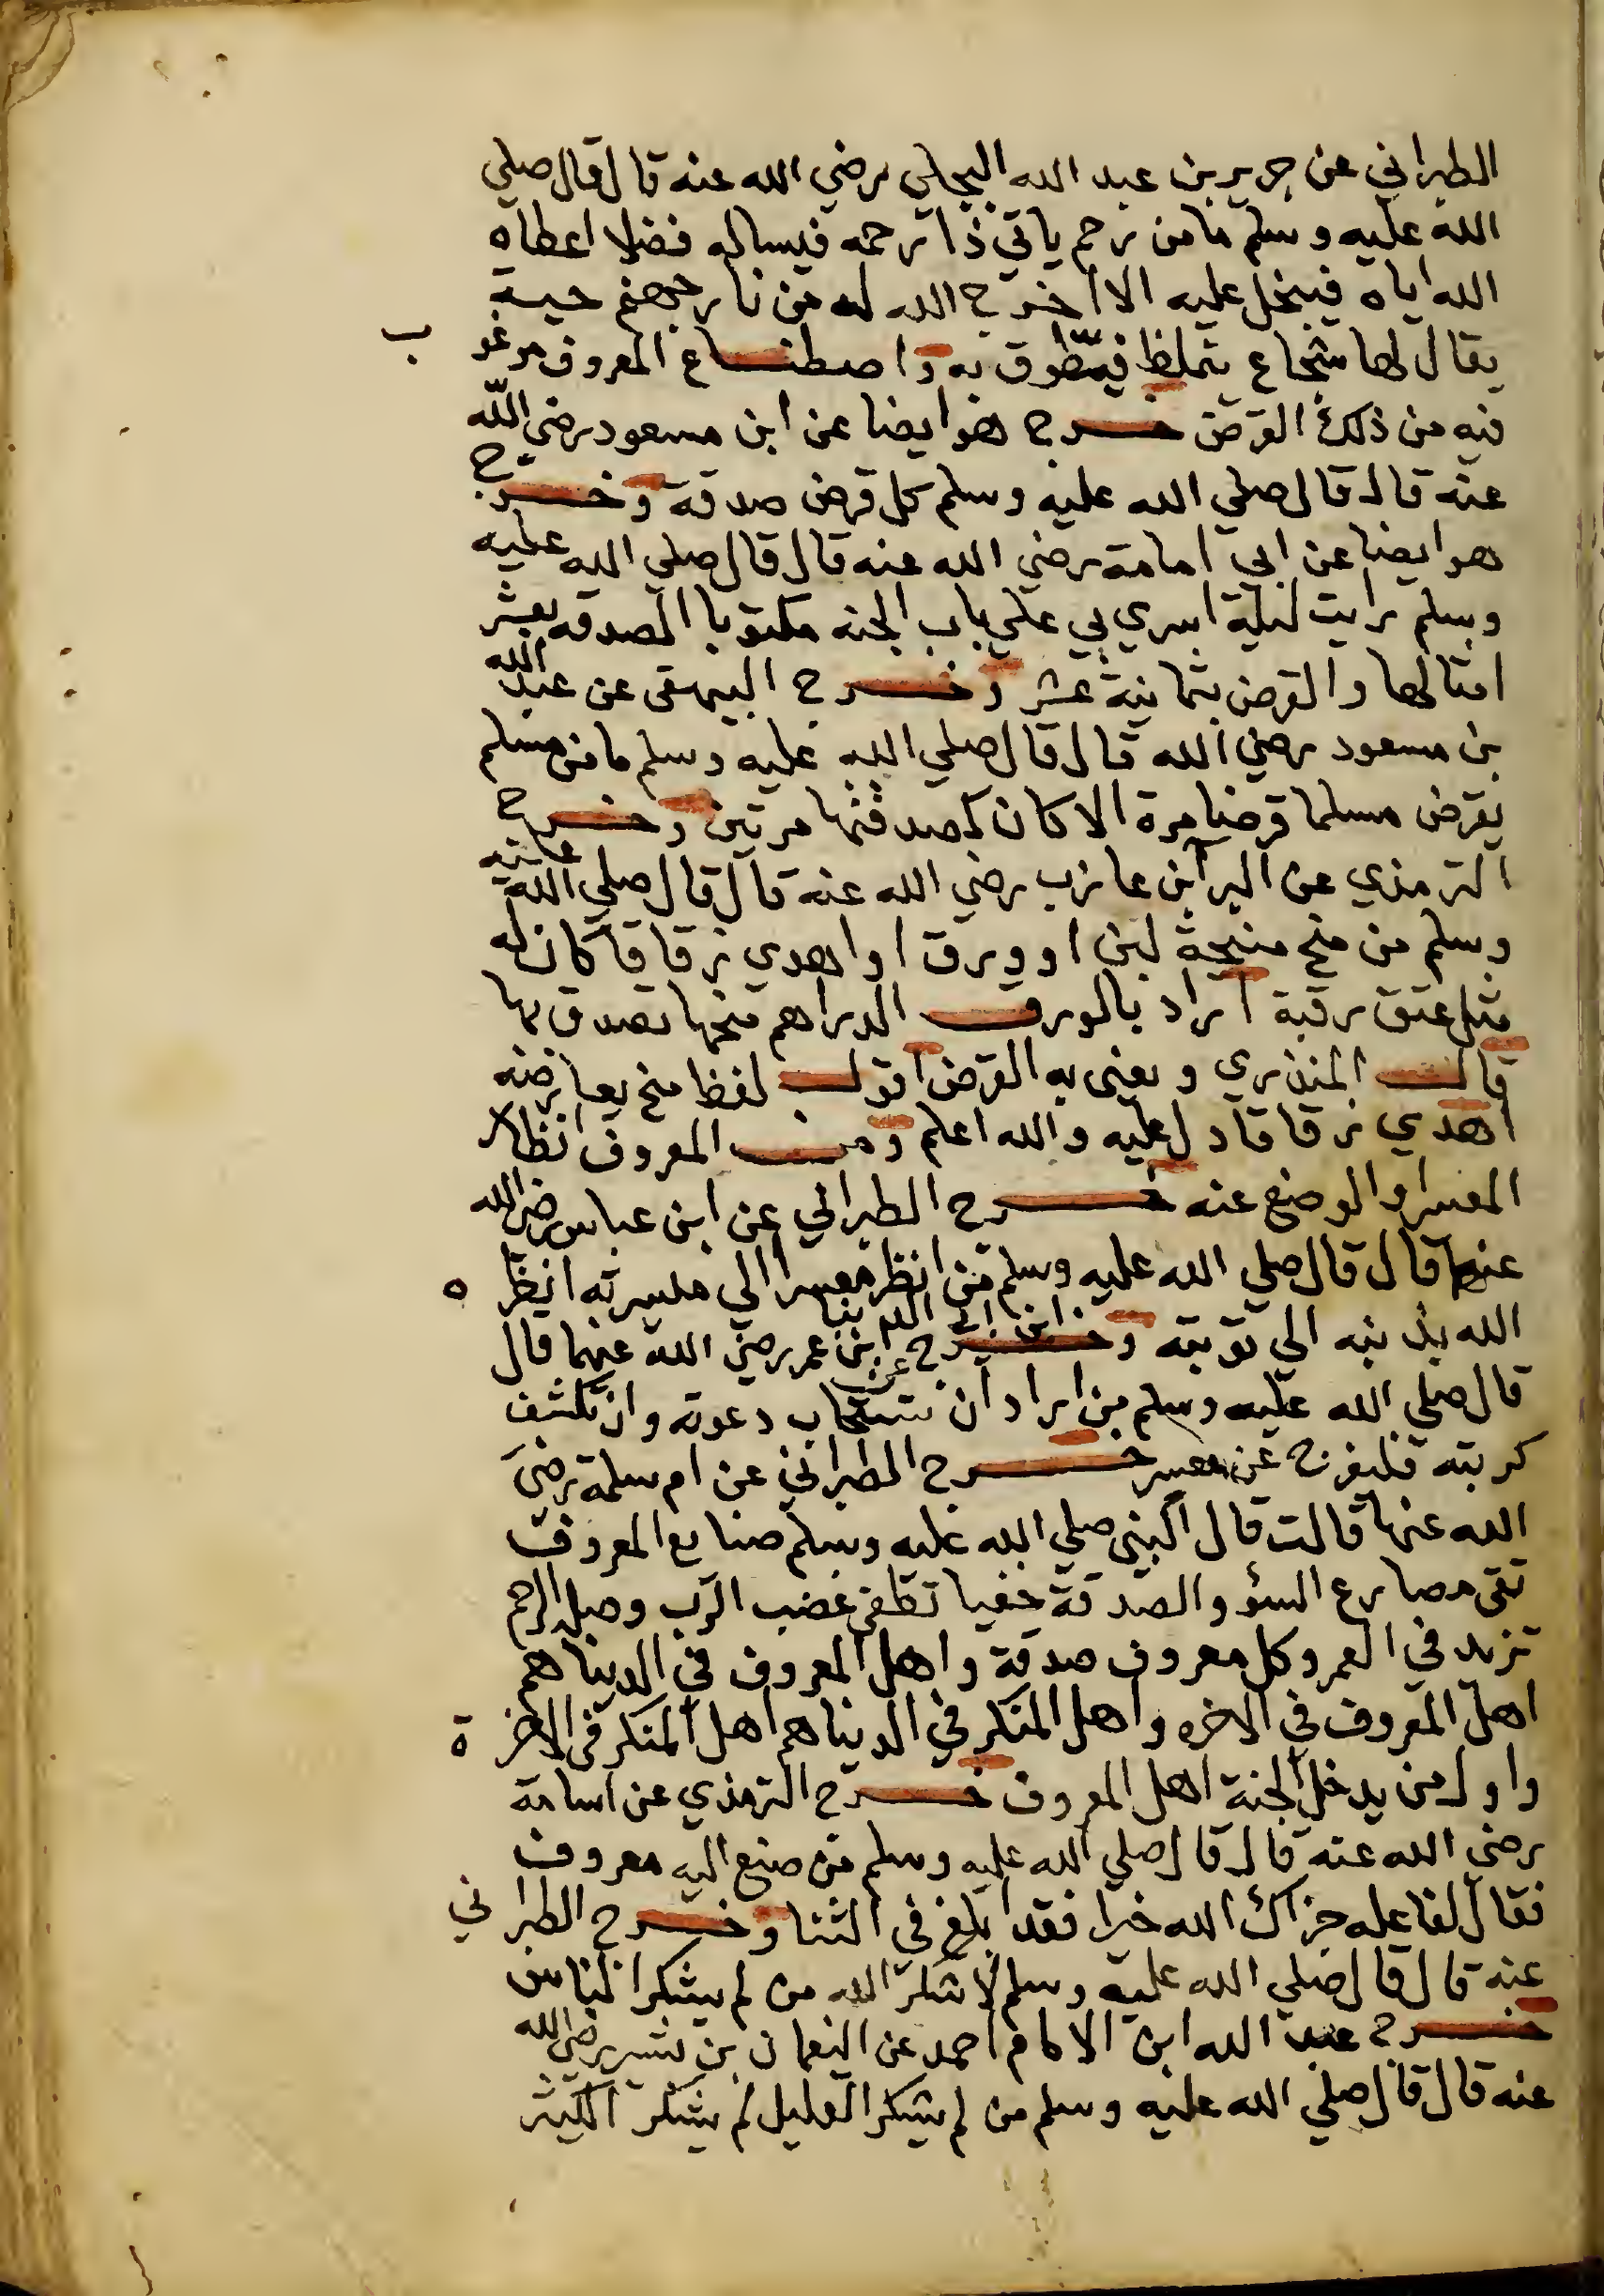 الطبراني عن جرير بن عبد الله البجلي رضي الله عنه قال قال صلي
الله عليه وسلم ما من رحم ياتي ذا رحمه فيساله فضلا اعطاه
الله اياه فيبخل عليه الا اخرج الله له من نار جهنم حية
يقال لها شجاع يتملظ فيطوق به واصطناع المعروف مرغوب
فيه من ذلك القرض خرج هو ايضا عن ابن مسعود رضي الله
عنه قال قال صلي الله عليه وسلم كل قرض صدقة وخرج
هو ايضا عن ابي امامة رضي الله عنه قال قال صلي الله عليه
وسلم رايت ليلة اسري بي علي باب الجنه مكتوبا الصدقه بعشر
امثالها والقرض بثمانية عشر وخرج البيهقى عن عبد الله
بن مسعود رضي الله قال قال صلي الله عليه وسلم ما من مسلم
يقرض مسلما قرضا مرة الا كان كصدقتها مرتين وخرج
الترمذي عن البرآ بن عازب رضي الله عنه قال قال صلي الله عليه
وسلم من منح منيحة لبن او ورق او اهدي زقاقا كان له
مثل عتق رقبة اراد بالورق الدراهم منحها تصدق بها
قال المنذري ويعني به القرض اقول لفظ منح يعارضه
اهدي زقاقا دل عليه والله اعلم ومن المعروف انظار
المعسر او الوضع عنه خرج الطبراني عن ابن عباس رضي الله
عنهما قال قال صلي الله عليه وسلم من انظر معسرا الي ميسرته انظره
الله بذنبه الي توبته وخرج ابن ابي الدنيا عن ابن عمر رضي الله عنهما قال
قال صلي الله عليه وسلم من اراد ان تستجاب دعوته وان تكشف
كربته فليفرج عن معسر خرج الطبراني عن ام سلمة رضي
الله عنها قالت قال النبي صلي الله عليه وسلم صنايع المعروف
تقى مصارع السؤ والصدقة خفيا تطفي غضب الرب وصلة الرحم
تزيد في العمر وكل معروف صدقة واهل المعروف في الدنيا هم
اهل المعروف في الاخره واهل المنكر في الدنيا هم اهل المنكر في الاخرة
واول من يدخل الجنة اهل المعروف خرج الترمذي عن اسامة
رضي الله عنه قال قال صلي الله عليه وسلم من صنع اليه معروف
فقال لفاعله جزاك الله خيرا فقد ابلغ في الثنا وخرج الطبراني
عنه قال قال صلي الله عليه وسلم لا شكر الله من لم يشكر الناس
خرج عبد الله ابن الامام احمد عن النعمان بن بشير رضي الله
عنه قال قال صلي الله عليه وسلم من لم يشكر القليل لم يشكر الكثير